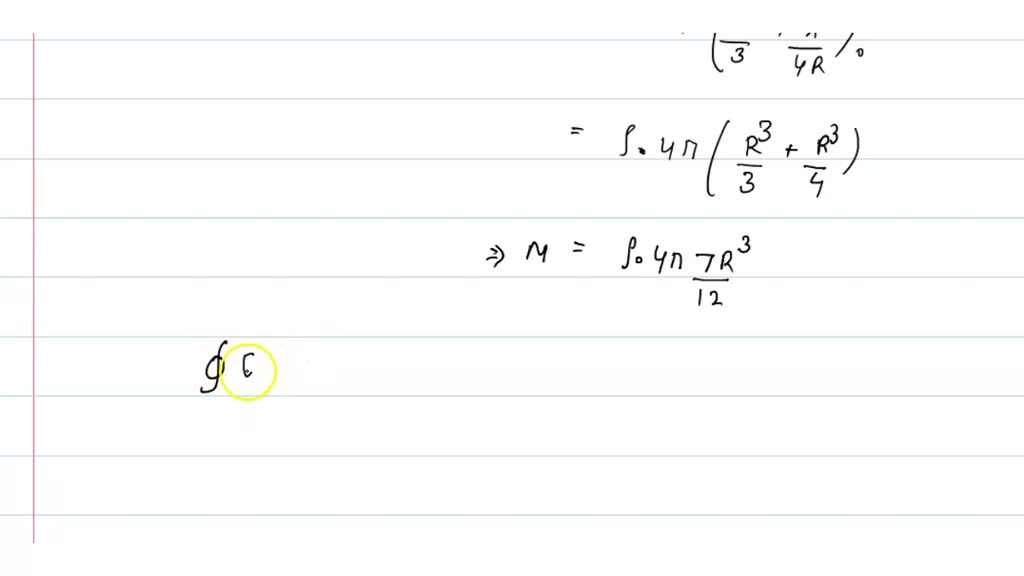 (/3 /4R)₀
= ρ₀ 4π ( R³/3 + R³/4 )
⇒ M = ρ₀ 4π 7R³/12
∮ G